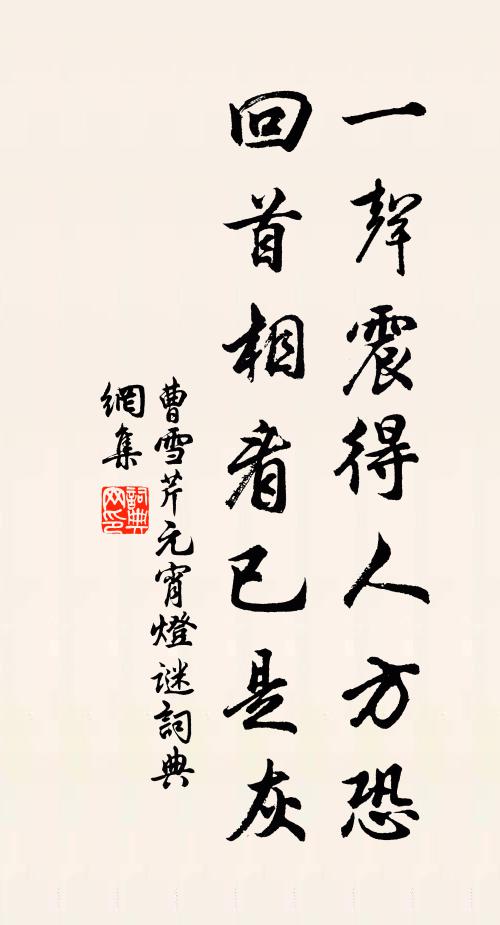 一聲震得人方恐
回首相看已是灰
曹雪芹元宵燈謎詞典
網集
詞典
网印